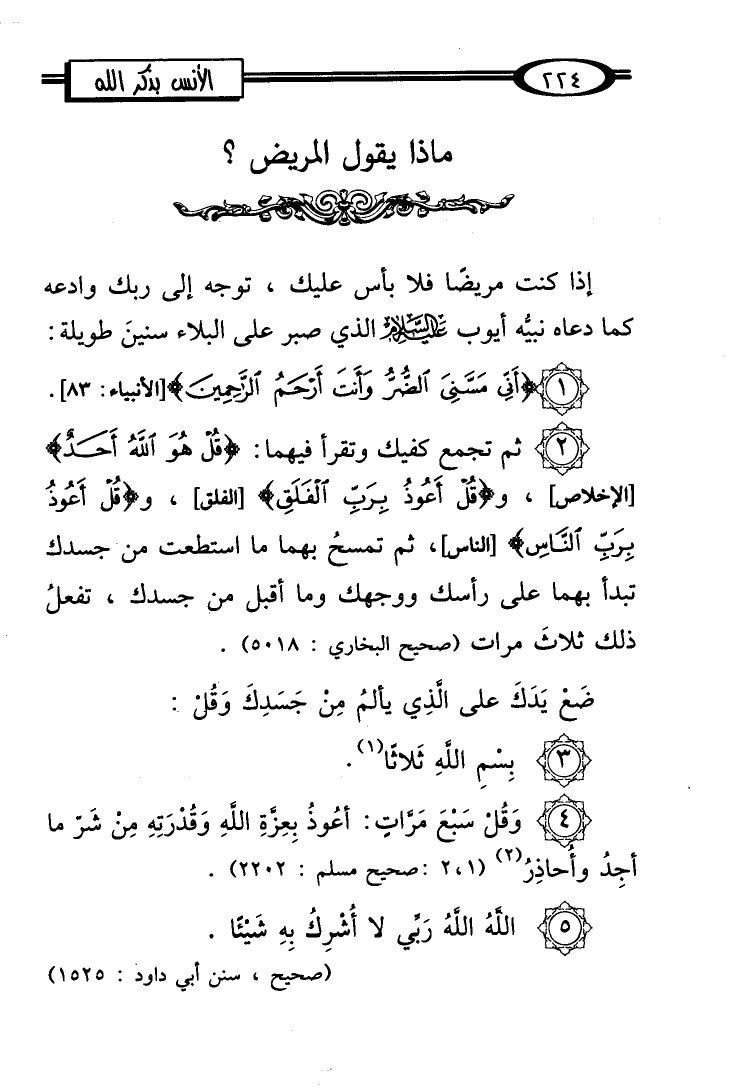 ٢٢٤
الأنس بذكر الله
ماذا يقول المريض ؟
إذا كنت مريضًا فلا بأس عليك ، توجه إلى ربك وادعه
كما دعاه نبيُّه أيوب عليه السلام الذي صبر على البلاء سنينَ طويلة :
١ ﴿أَنِّي مَسَّنِيَ ٱلضُّرُّ وَأَنتَ أَرْحَمُ ٱلرَّٰحِمِينَ﴾ [الأنبياء: ٨٣] .
٢ ثم تجمع كفيك وتقرأ فيهما : ﴿قُلْ هُوَ ٱللَّهُ أَحَدٌ﴾
[الإخلاص] ، و﴿قُلْ أَعُوذُ بِرَبِّ ٱلْفَلَقِ﴾ [الفلق] ، و﴿قُلْ أَعُوذُ
بِرَبِّ ٱلنَّاسِ﴾ [الناس]، ثم تمسحُ بهما ما استطعت من جسدك
تبدأ بهما على رأسك ووجهك وما أقبل من جسدك ، تفعلُ
ذلك ثلاثَ مرات (صحيح البخاري : ٥٠١٨) .
ضَعْ يَدَكَ على الَّذِي يألمُ مِنْ جَسَدِكَ وَقُلْ :
٣ بِسْمِ اللَّهِ ثَلاثًا(١) .
٤ وَقُلْ سَبْعَ مَرَّاتٍ : أعُوذُ بِعِزَّةِ اللَّهِ وَقُدْرَتِهِ مِنْ شَرّ ما
أجِدُ وأُحاذِرُ(٢) (٢،١ :صحيح مسلم : ٢٢٠٢) .
٥ اللَّهُ اللَّهُ رَبِّي لا أُشْرِكُ بِهِ شَيْئًا .
(صحيح ، سنن أبي داود : ١٥٢٥)